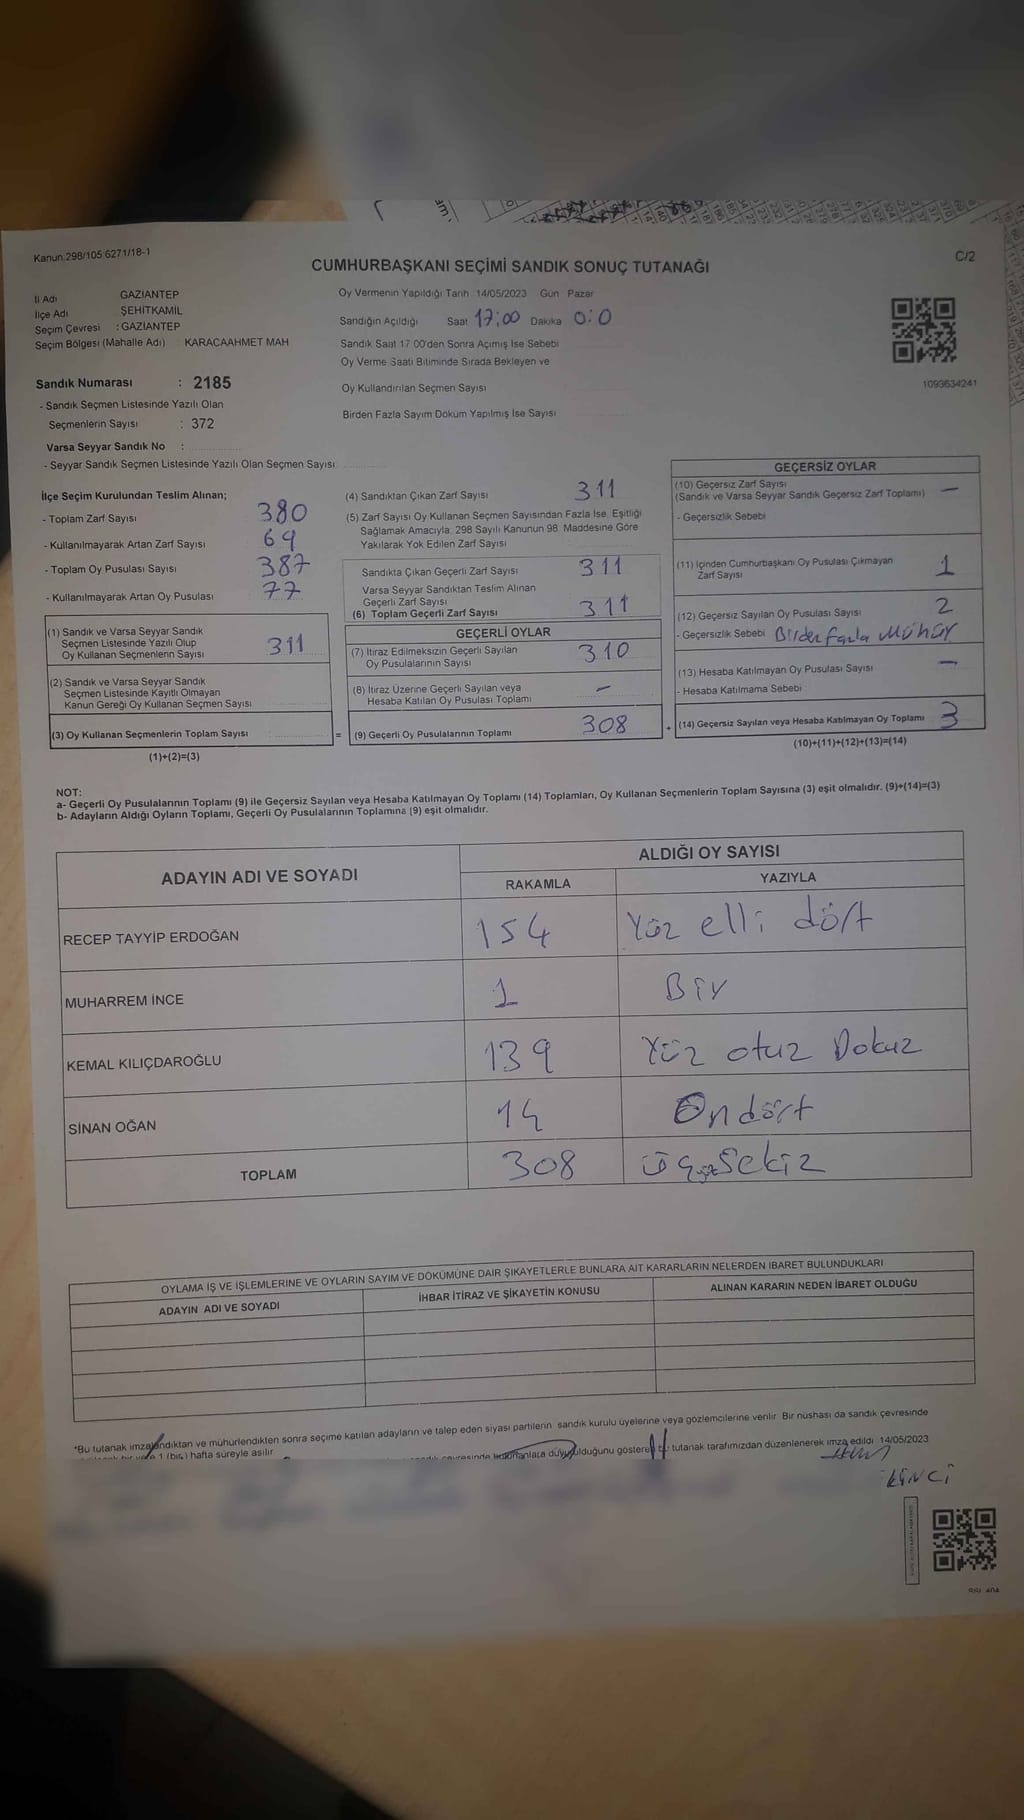 Kanun:298/105 6271/18-1
C/2
CUMHURBAŞKANI SEÇİMİ SANDIK SONUÇ TUTANAĞI
İl Adı GAZİANTEP
İlçe Adı ŞEHİTKAMİL
Seçim Çevresi : GAZİANTEP
Seçim Bölgesi (Mahalle Adı) KARACAAHMET MAH
Oy Vermenin Yapıldığı Tarih 14/05/2023 Gün Pazar
Sandığın Açıldığı Saat 17:00 Dakika 0:0
Sandık Saat 17 00'den Sonra Açımış İse Sebebi
Oy Verme Saati Bitiminde Sırada Bekleyen ve
Oy Kullandırılan Seçmen Sayısı
Birden Fazla Sayım Döküm Yapılmış İse Sayısı
1093634241
Sandık Numarası : 2185
- Sandık Seçmen Listesinde Yazılı Olan
Seçmenlerin Sayısı : 372
Varsa Seyyar Sandık No :
- Seyyar Sandık Seçmen Listesinde Yazılı Olan Seçmen Sayısı
İlçe Seçim Kurulundan Teslim Alınan;
- Toplam Zarf Sayısı 380
- Kullanılmayarak Artan Zarf Sayısı 69
- Toplam Oy Pusulası Sayısı 387
- Kullanılmayarak Artan Oy Pusulası 77
(1) Sandık ve Varsa Seyyar Sandık
Seçmen Listesinde Yazılı Olup
Oy Kullanan Seçmenlerin Sayısı 311
(2) Sandık ve Varsa Seyyar Sandık
Seçmen Listesinde Kayıtlı Olmayan
Kanun Gereği Oy Kullanan Seçmen Sayısı
(3) Oy Kullanan Seçmenlerin Toplam Sayısı
(1)+(2)=(3)
(4) Sandıktan Çıkan Zarf Sayısı 311
(5) Zarf Sayısı Oy Kullanan Seçmen Sayısından Fazla İse, Eşitliği
Sağlamak Amacıyla 298 Sayılı Kanunun 98 Maddesine Göre
Yakılarak Yok Edilen Zarf Sayısı
Sandıkta Çıkan Geçerli Zarf Sayısı 311
Varsa Seyyar Sandıktan Teslim Alınan
Geçerli Zarf Sayısı
(6) Toplam Geçerli Zarf Sayısı 311
GEÇERLİ OYLAR
(7) İtiraz Edilmeksizin Geçerli Sayılan
Oy Pusulalarının Sayısı 310
(8) İtiraz Üzerine Geçerli Sayılan veya
Hesaba Katılan Oy Pusulası Toplamı —
= (9) Geçerli Oy Pusulalarının Toplamı 308 +
GEÇERSİZ OYLAR
(10) Geçersiz Zarf Sayısı
(Sandık ve Varsa Seyyar Sandık Geçersiz Zarf Toplamı) —
- Geçersizlik Sebebi
(11) İçinden Cumhurbaşkanı Oy Pusulası Çıkmayan
Zarf Sayısı 1
(12) Geçersiz Sayılan Oy Pusulası Sayısı 2
- Geçersizlik Sebebi Birden fazla Mühür
(13) Hesaba Katılmayan Oy Pusulası Sayısı —
- Hesaba Katılmama Sebebi
(14) Geçersiz Sayılan veya Hesaba Katılmayan Oy Toplamı 3
(10)+(11)+(12)+(13)=(14)
NOT:
a- Geçerli Oy Pusulalarının Toplamı (9) ile Geçersiz Sayılan veya Hesaba Katılmayan Oy Toplamı (14) Toplamları, Oy Kullanan Seçmenlerin Toplam Sayısına (3) eşit olmalıdır. (9)+(14)=(3)
b- Adayların Aldığı Oyların Toplamı, Geçerli Oy Pusulalarının Toplamına (9) eşit olmalıdır.
ADAYIN ADI VE SOYADI
ALDIĞI OY SAYISI
RAKAMLA YAZIYLA
RECEP TAYYİP ERDOĞAN 154 Yüz elli dört
MUHARREM İNCE 1 Bir
KEMAL KILIÇDAROĞLU 139 Yüz otuz Dokuz
SİNAN OĞAN 14 Ondört
TOPLAM 308 üçyüzSekiz
OYLAMA İŞ VE İŞLEMLERİNE VE OYLARIN SAYIM VE DÖKÜMÜNE DAİR ŞİKAYETLERLE BUNLARA AİT KARARLARIN NELERDEN İBARET BULUNDUKLARI
ADAYIN ADI VE SOYADI İHBAR İTİRAZ VE ŞİKAYETİN KONUSU ALINAN KARARIN NEDEN İBARET OLDUĞU
*Bu tutanak imzalandıktan ve mühürlendikten sonra seçime katılan adayların ve talep eden siyasi partilerin sandık kurulu üyelerine veya gözlemcilerine verilir Bir nüshası da sandık çevresinde
1 (bir) hafta süreyle asılır
duyulduğunu gösteren bu tutanak tarafımızdan düzenlenerek imza edildi 14/05/2023